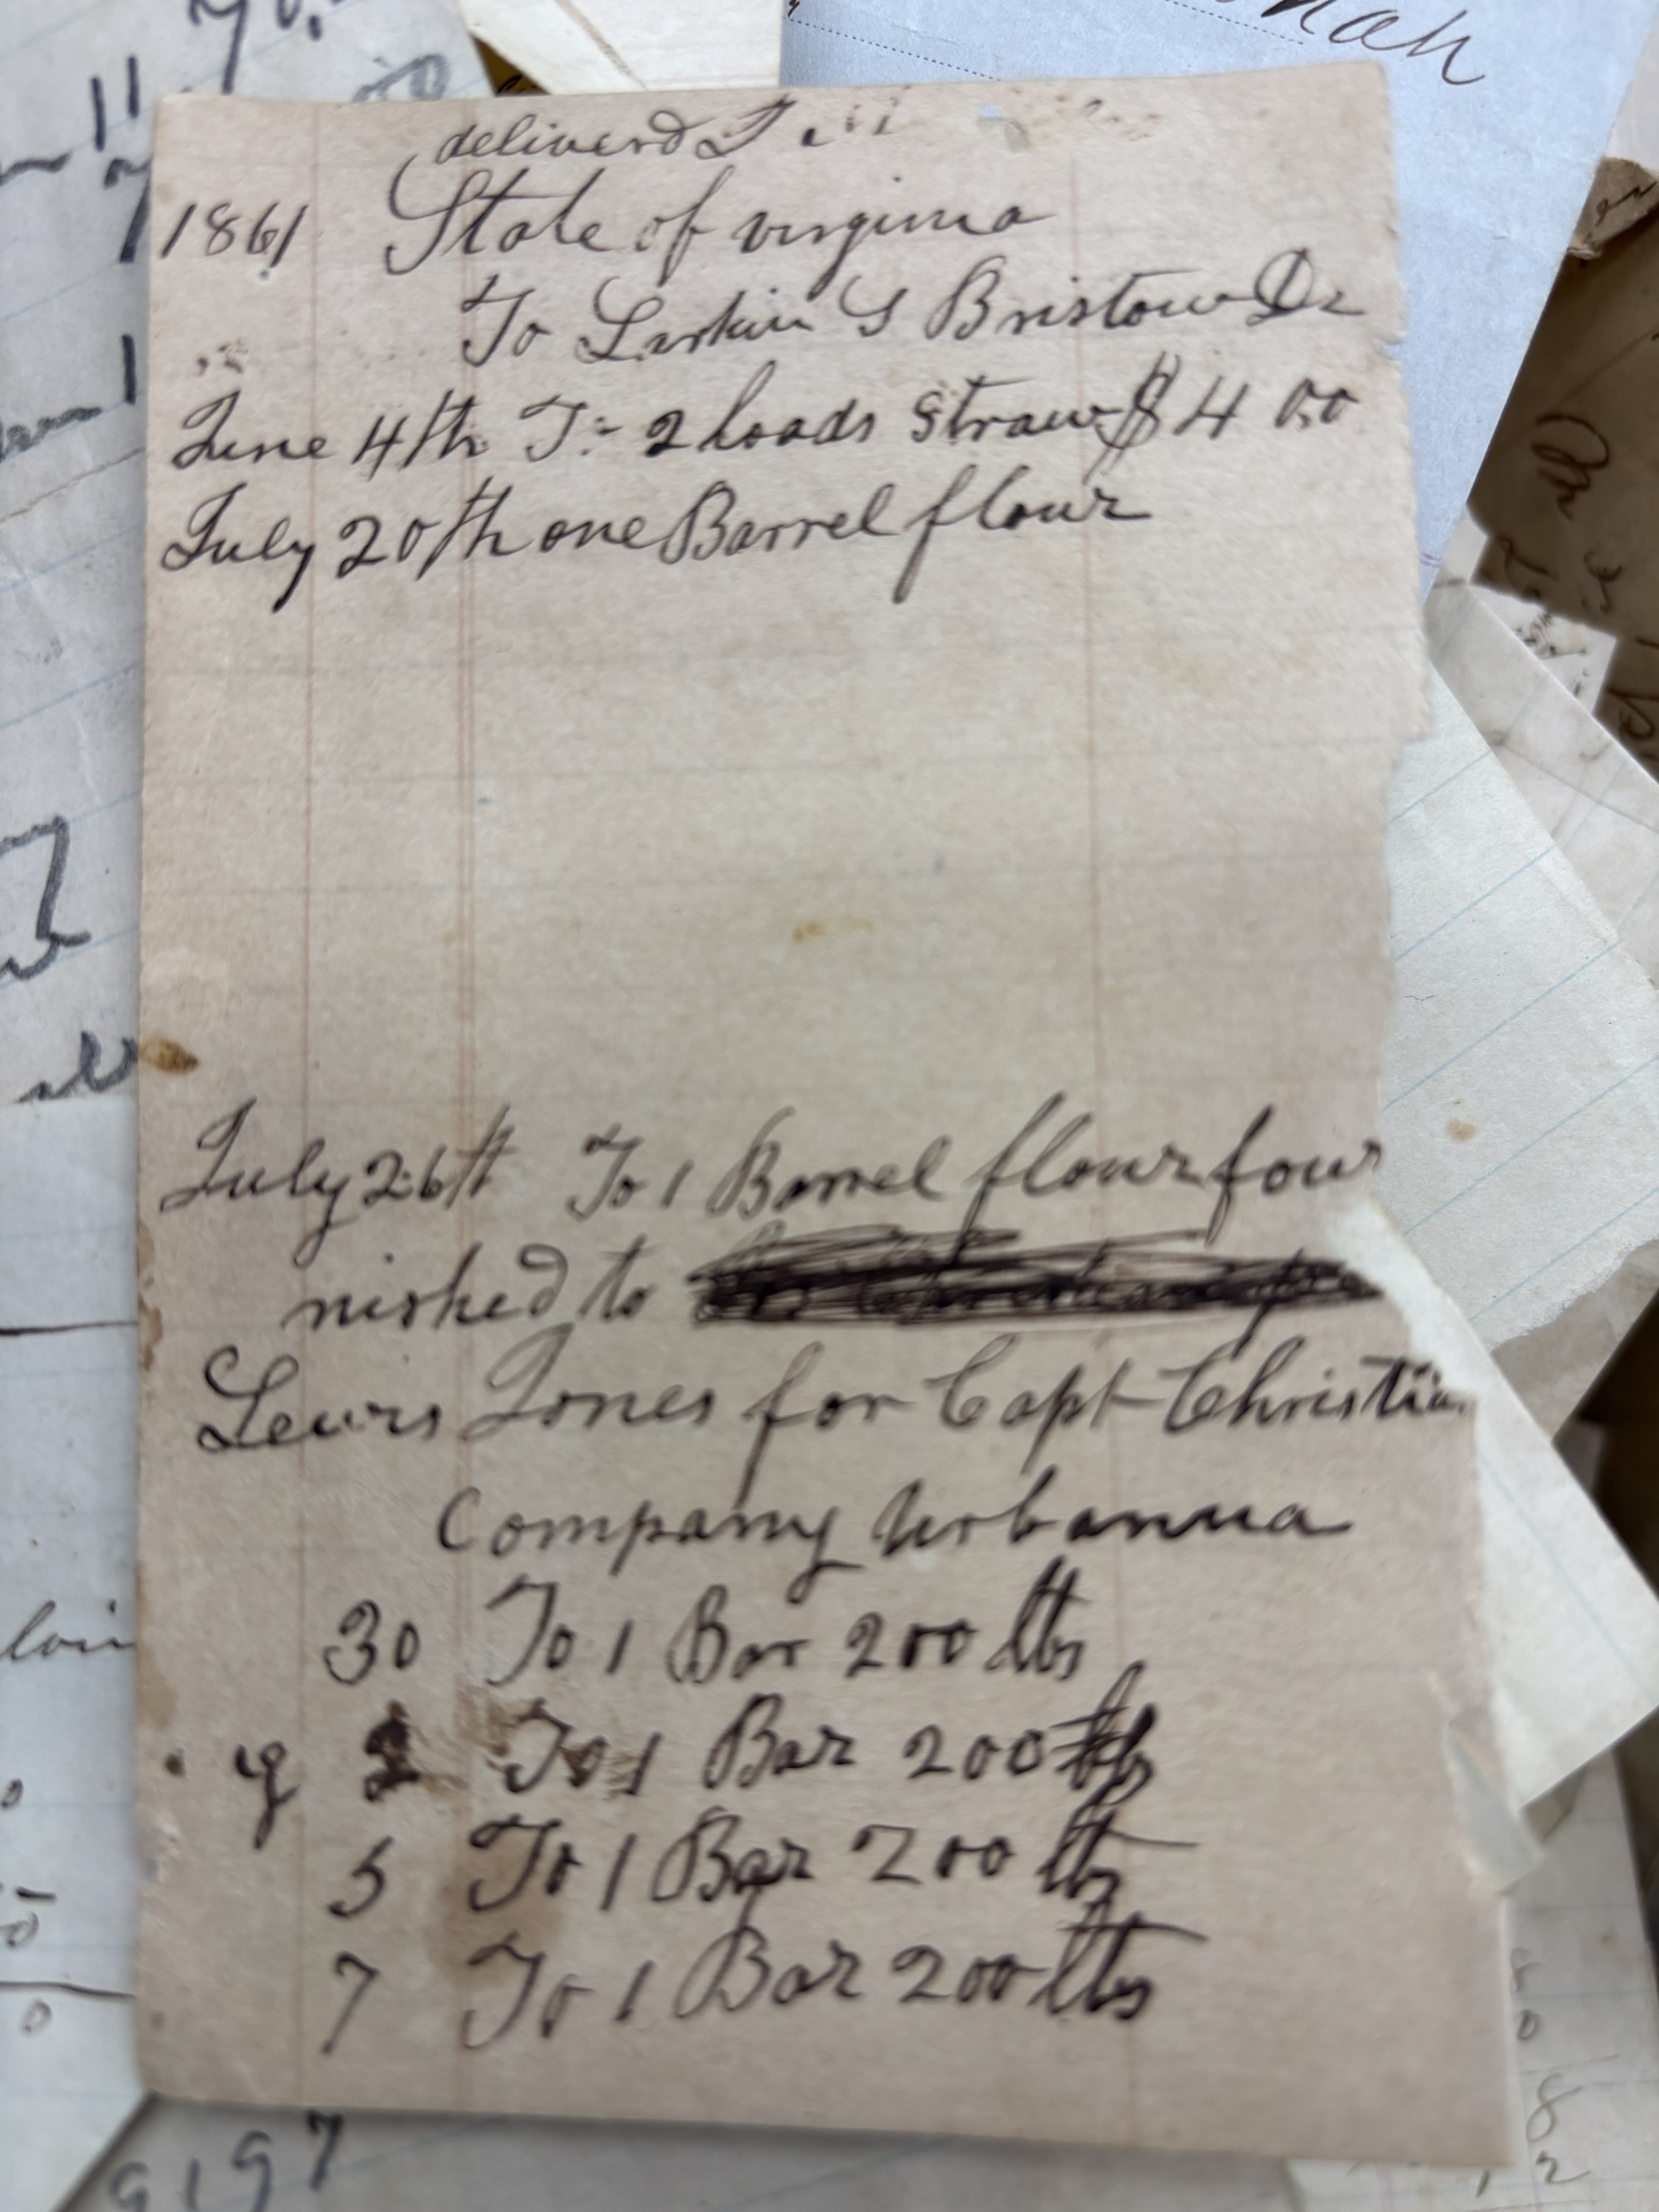 deliverd
1861 State of virginia
To Larkin S Bristow Dr
June 4th To 2 loads straw $4 00
July 20th one Barrel flour
July 26th To 1 Barrel flour four
nished to
Lewis Jones for Capt Christian
Company Urbanna
30 To 1 Bar 200 lbs
g 2 To 1 Bar 200 lbs
5 To 1 Bar 200 lbs
7 To 1 Bar 200 lbs
9197